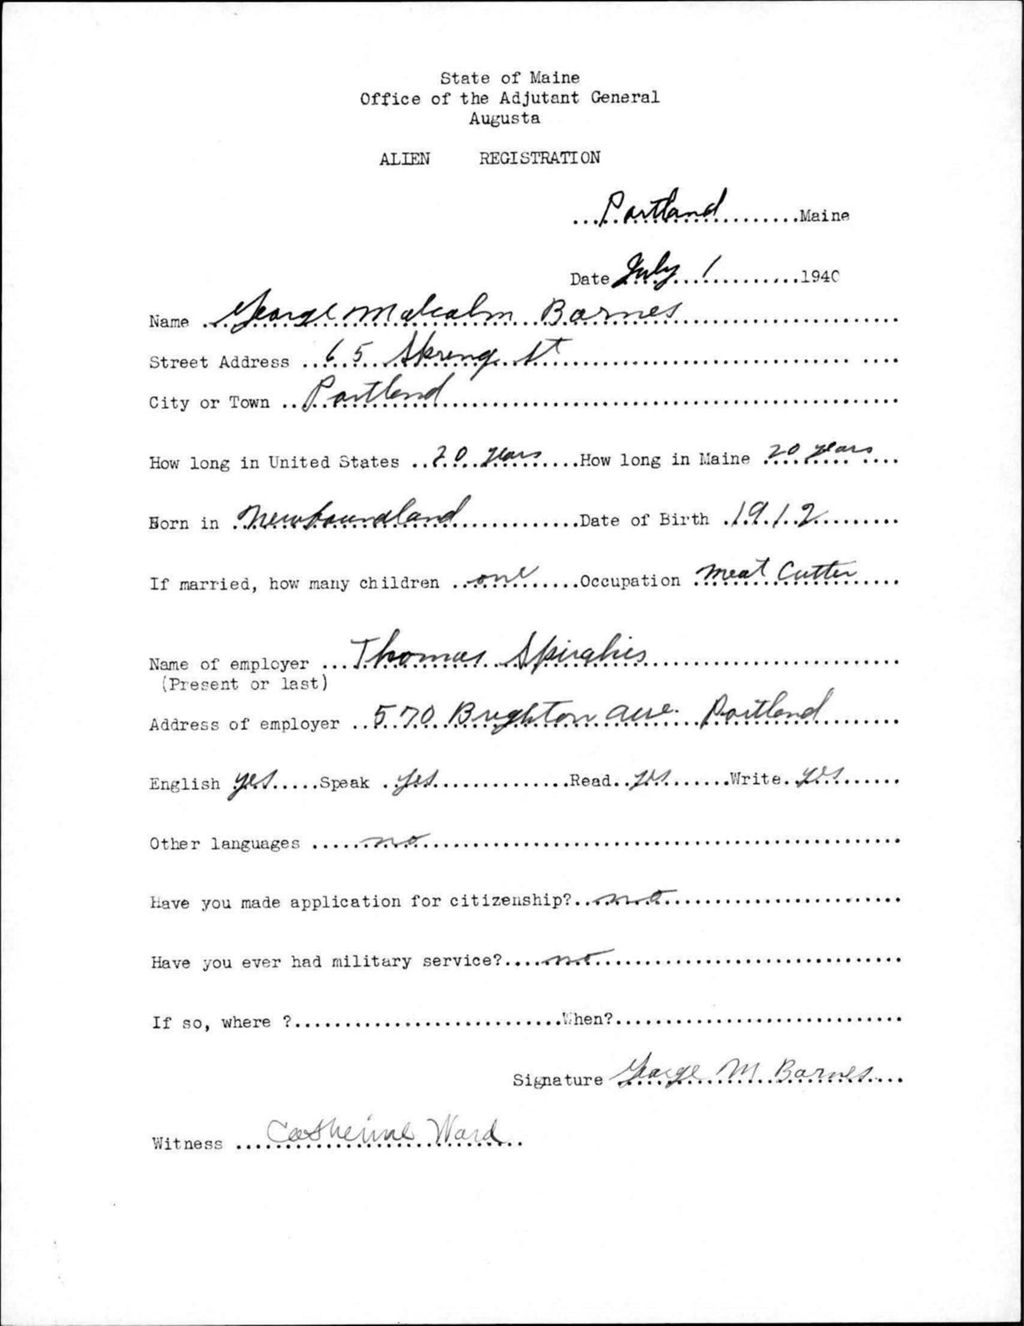 State of Maine
Office of the Adjutant General
Augusta
ALIEN REGISTRATION
...Portland.........Maine
Date July 1............1940
Name ..George Malcolm Barnes......................
Street Address ..65 Spring St......................
City or Town ..Portland......................
How long in United States ..20 years.....How long in Maine 20 years....
Born in .Newfoundland............Date of Birth .1912.........
If married, how many children ..one.......Occupation Meat Cutter.....
Name of employer ...Thomas ......................
(Present or last)
Address of employer ..570 Brighton Ave. Portland........
English yes.....Speak .yes..............Read..yes......Write.yes......
Other languages ......no......................
Have you made application for citizenship?..no......................
Have you ever had military service?....no......................
If so, where ?...........................When?.............................
Signature George M Barnes...
Witness ...Catherine Ward..